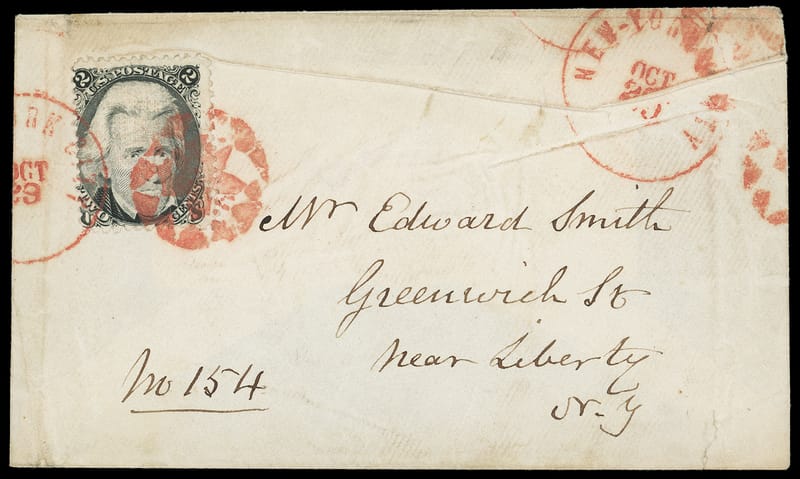 NEW-YORK
OCT
29
2
U.S. POSTAGE
2
RK
OCT
29
Mr Edward Smith
Greenwich St
near Liberty
N-Y
No 154